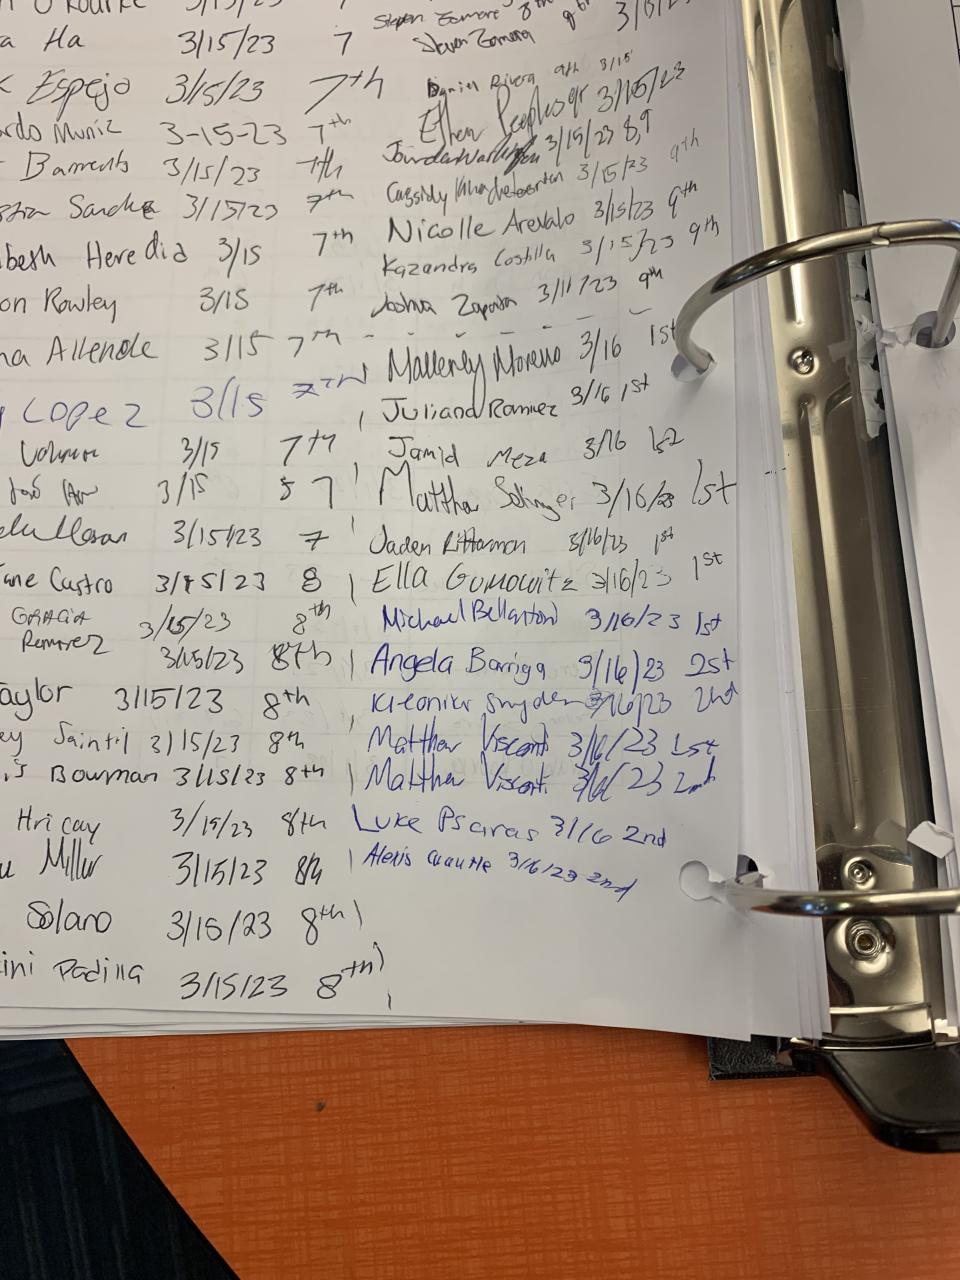 O'Rourke 3/15/23 7
a Ha 3/15/23 7
Espejo 3/15/23 7th
ardo Muniz 3-15-23 7th
Barrients 3/15/23 7th
Sanche 3/15/23 7th
beth Heredia 3/15 7th
on Rowley 3/15 7th
na Allende 3/15 7th
LOPEZ 3/15 7TH
3/15 7th
3/15 7
3/15/23 7
ane Castro 3/15/23 8
GARCIA 3/15/23 8th
Ramirez 3/15/23 8th
aylor 3/15/23 8th
ey Saintil 3/15/23 8th
is Bowman 3/15/23 8th
Hricay 3/15/23 8th
Miller 3/15/23 8th
Solano 3/15/23 8th
ini Padilla 3/15/23 8th
Stephen Zamora 8th
Steven Zamora 9th
Daniel Rivera 9th 3/15
Ethan Peoples 9r 3/15/23
3/15/23 8,9
Cassidy 3/15/23 9th
Nicolle Arevalo 3/15/23 9th
Kazandra Costilla 3/15/23 9th
Joshua Zapata 3/11/23 9th
Mallerly Moreno 3/16 1st
Juliana Ramirez 3/16 1st
Jamid Meza 3/16 1st
Matthew 3/16/23 1st
Jaden Ritterman 3/16/23 1st
Ella Gurowitz 3/16/23 1st
Michael Bellantoni 3/16/23 1st
Angela Barriga 3/16/23 2st
Snyder 3/16/23 2nd
Matthew Visconti 3/16/23 1st
Matthew Visconti 3/16/23 2nd
Luke Psaras 3/16 2nd
Alexis Cuautle 3/16/23 2nd